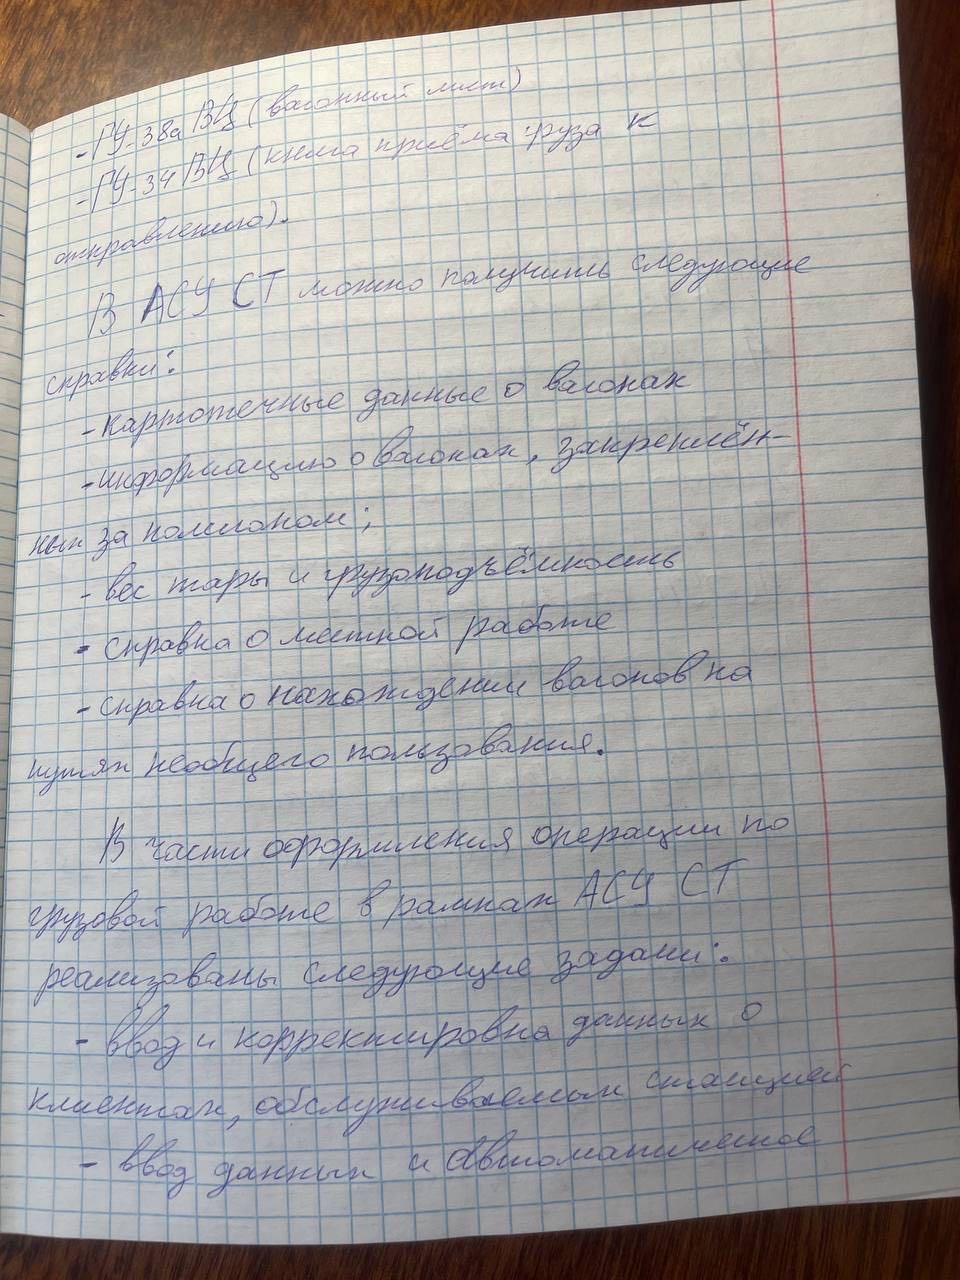 - ГУ-38а ВЦ (вагонный лист)
- ГУ-34 ВЦ (книга приёма груза к
отправлению).
В АСУ СТ можно получить следующие
справки:
- картотечные данные о вагонах
- информацию о вагонах, закреплён-
ных за полигоном;
- вес тары и грузоподъёмность
- справка о местной работе
- справка о нахождении вагонов на
путях необщего пользования.
В части оформления операции по
грузовой работе в рамках АСУ СТ
реализованы следующие задачи:
- ввод и корректировка данных о
клиентах, обслуживаемых станцией
- ввод данных и автоматическое